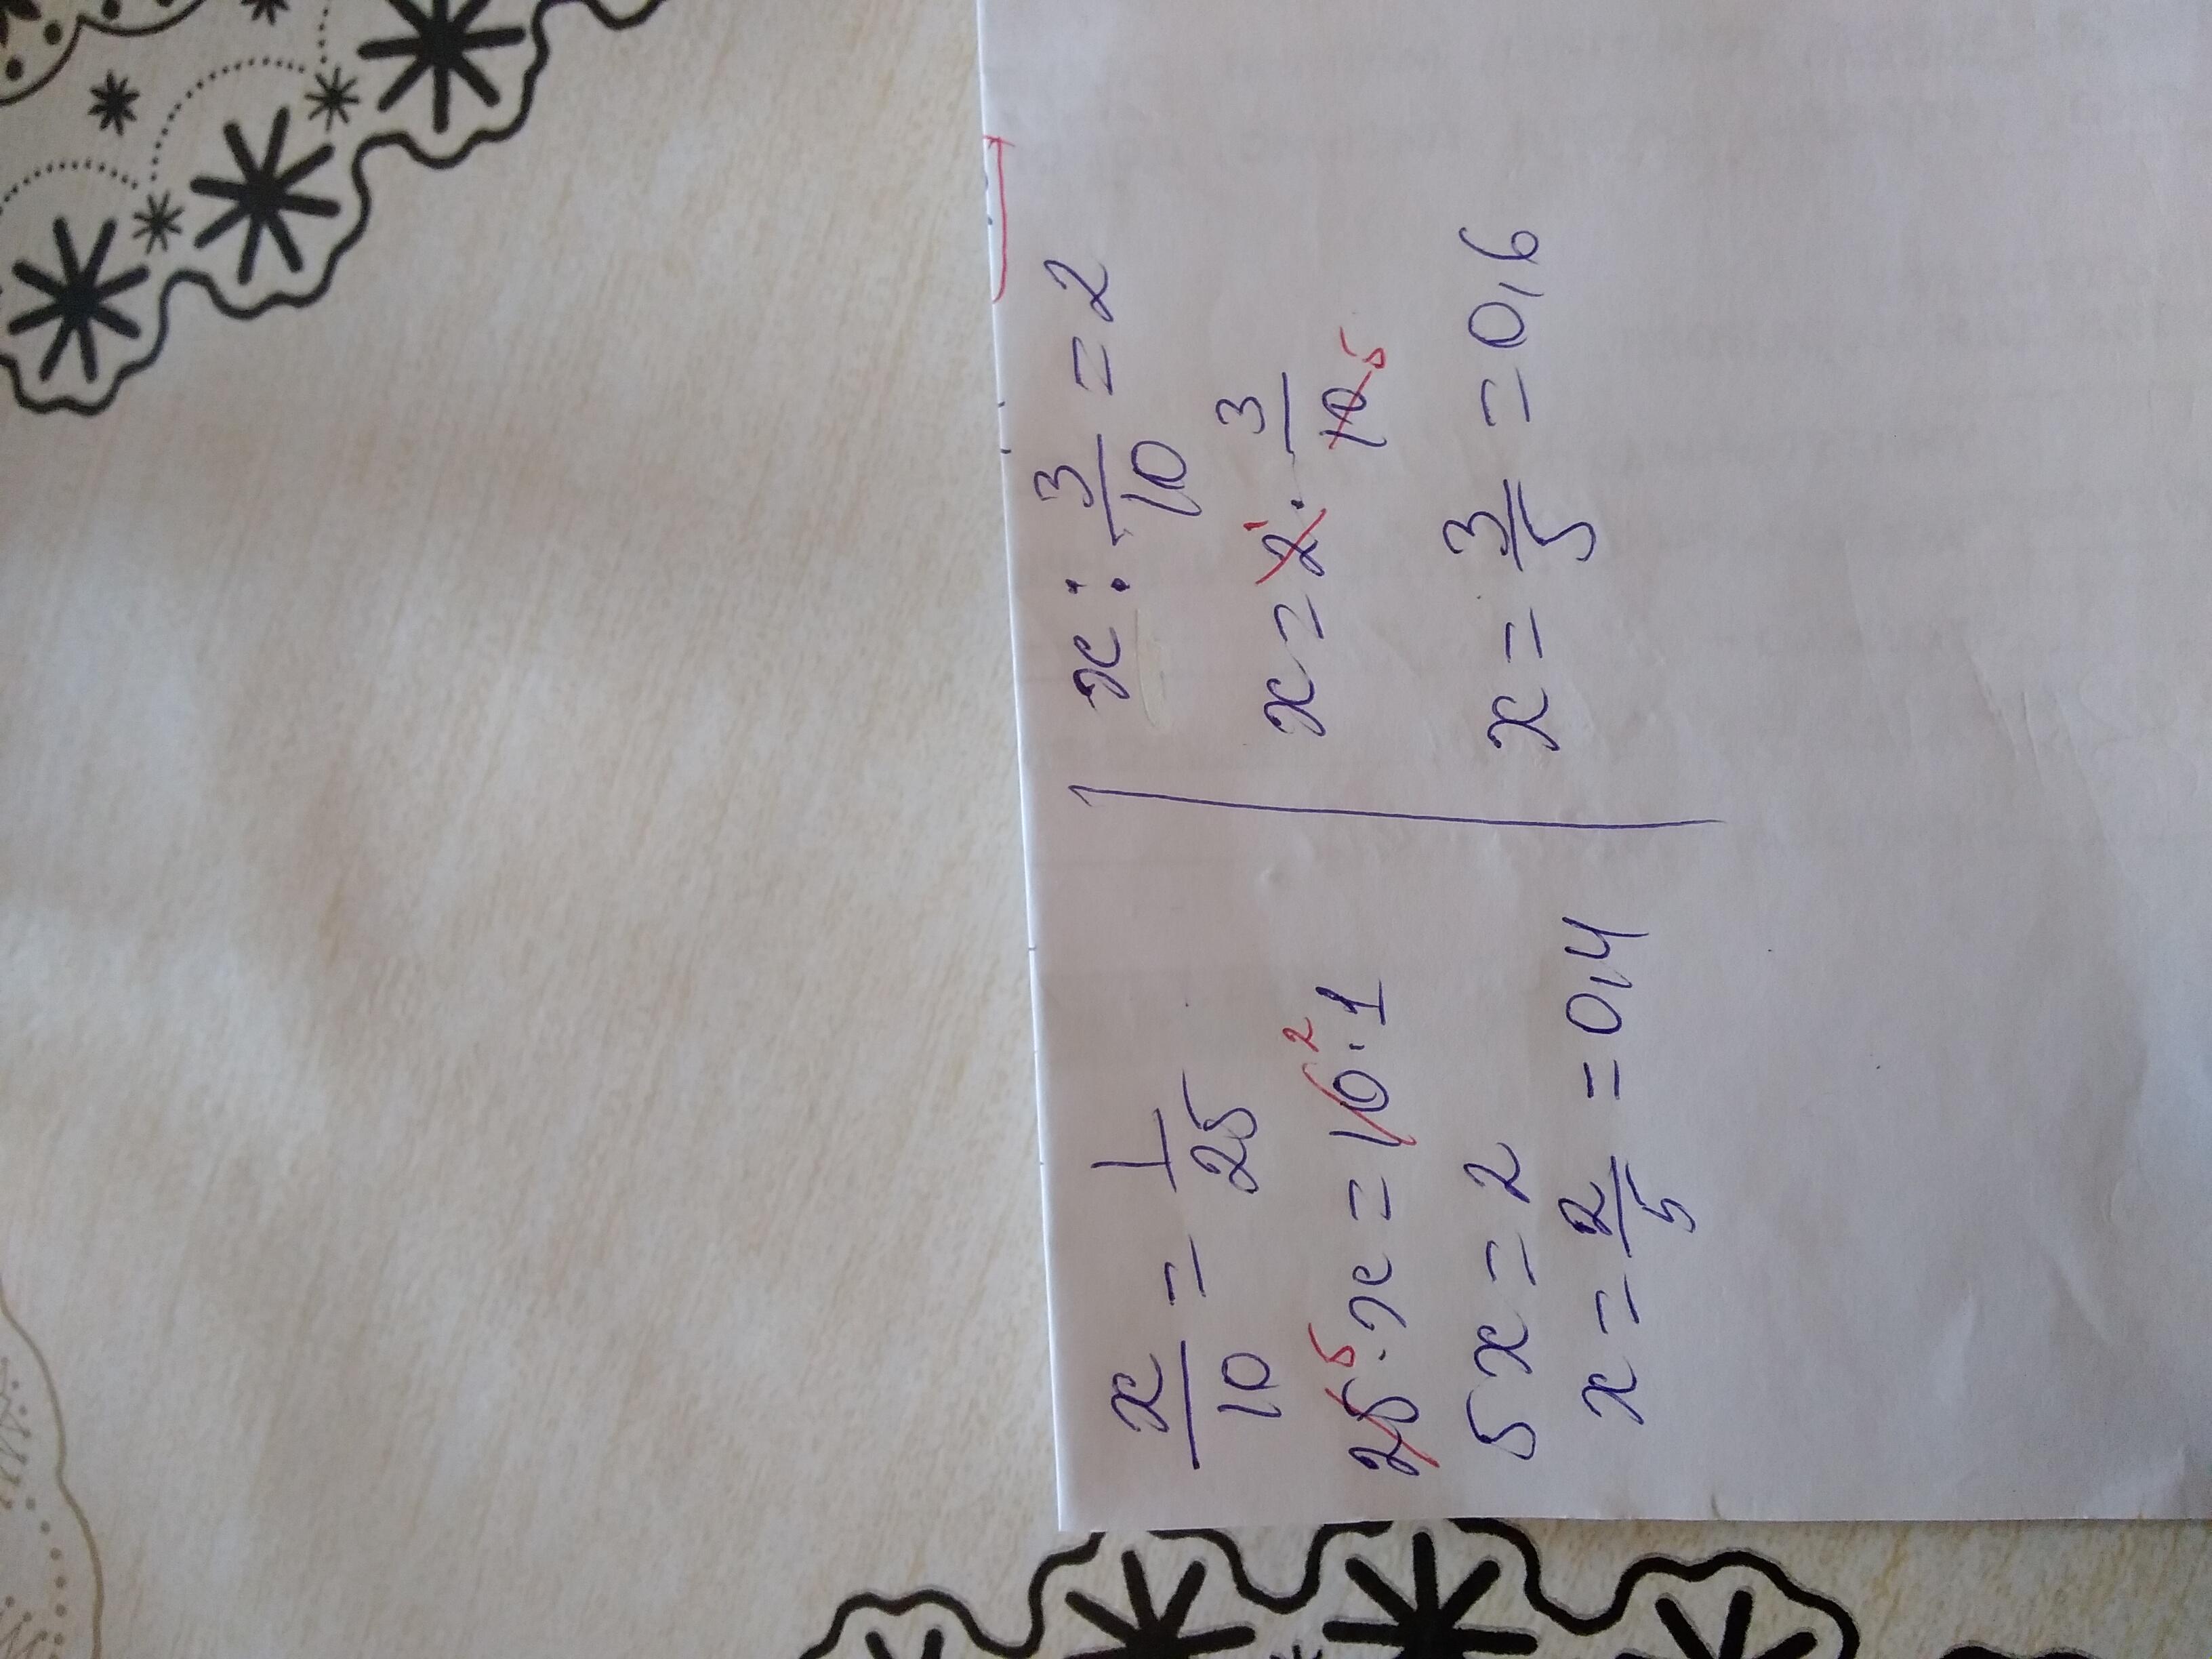 x/10 = 1/25
25⁵ · x = 10² · 1
5x = 2
x = 2/5 = 0,4
x : 3/10 = 2
x = 2¹ · 3/10 5
x = 3/5 = 0,6